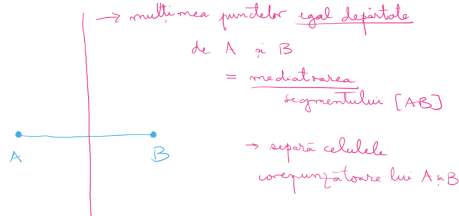 → mulțimea punctelor egal depărtate
de A și B
= mediatoarea
segmentului [AB]
A B
→ separă celulele
corespunzătoare lui A și B